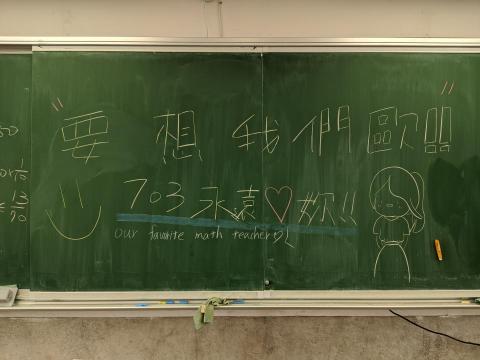 要想我們歐!!
703 永遠♡妳!!
our favorite math teacher♡